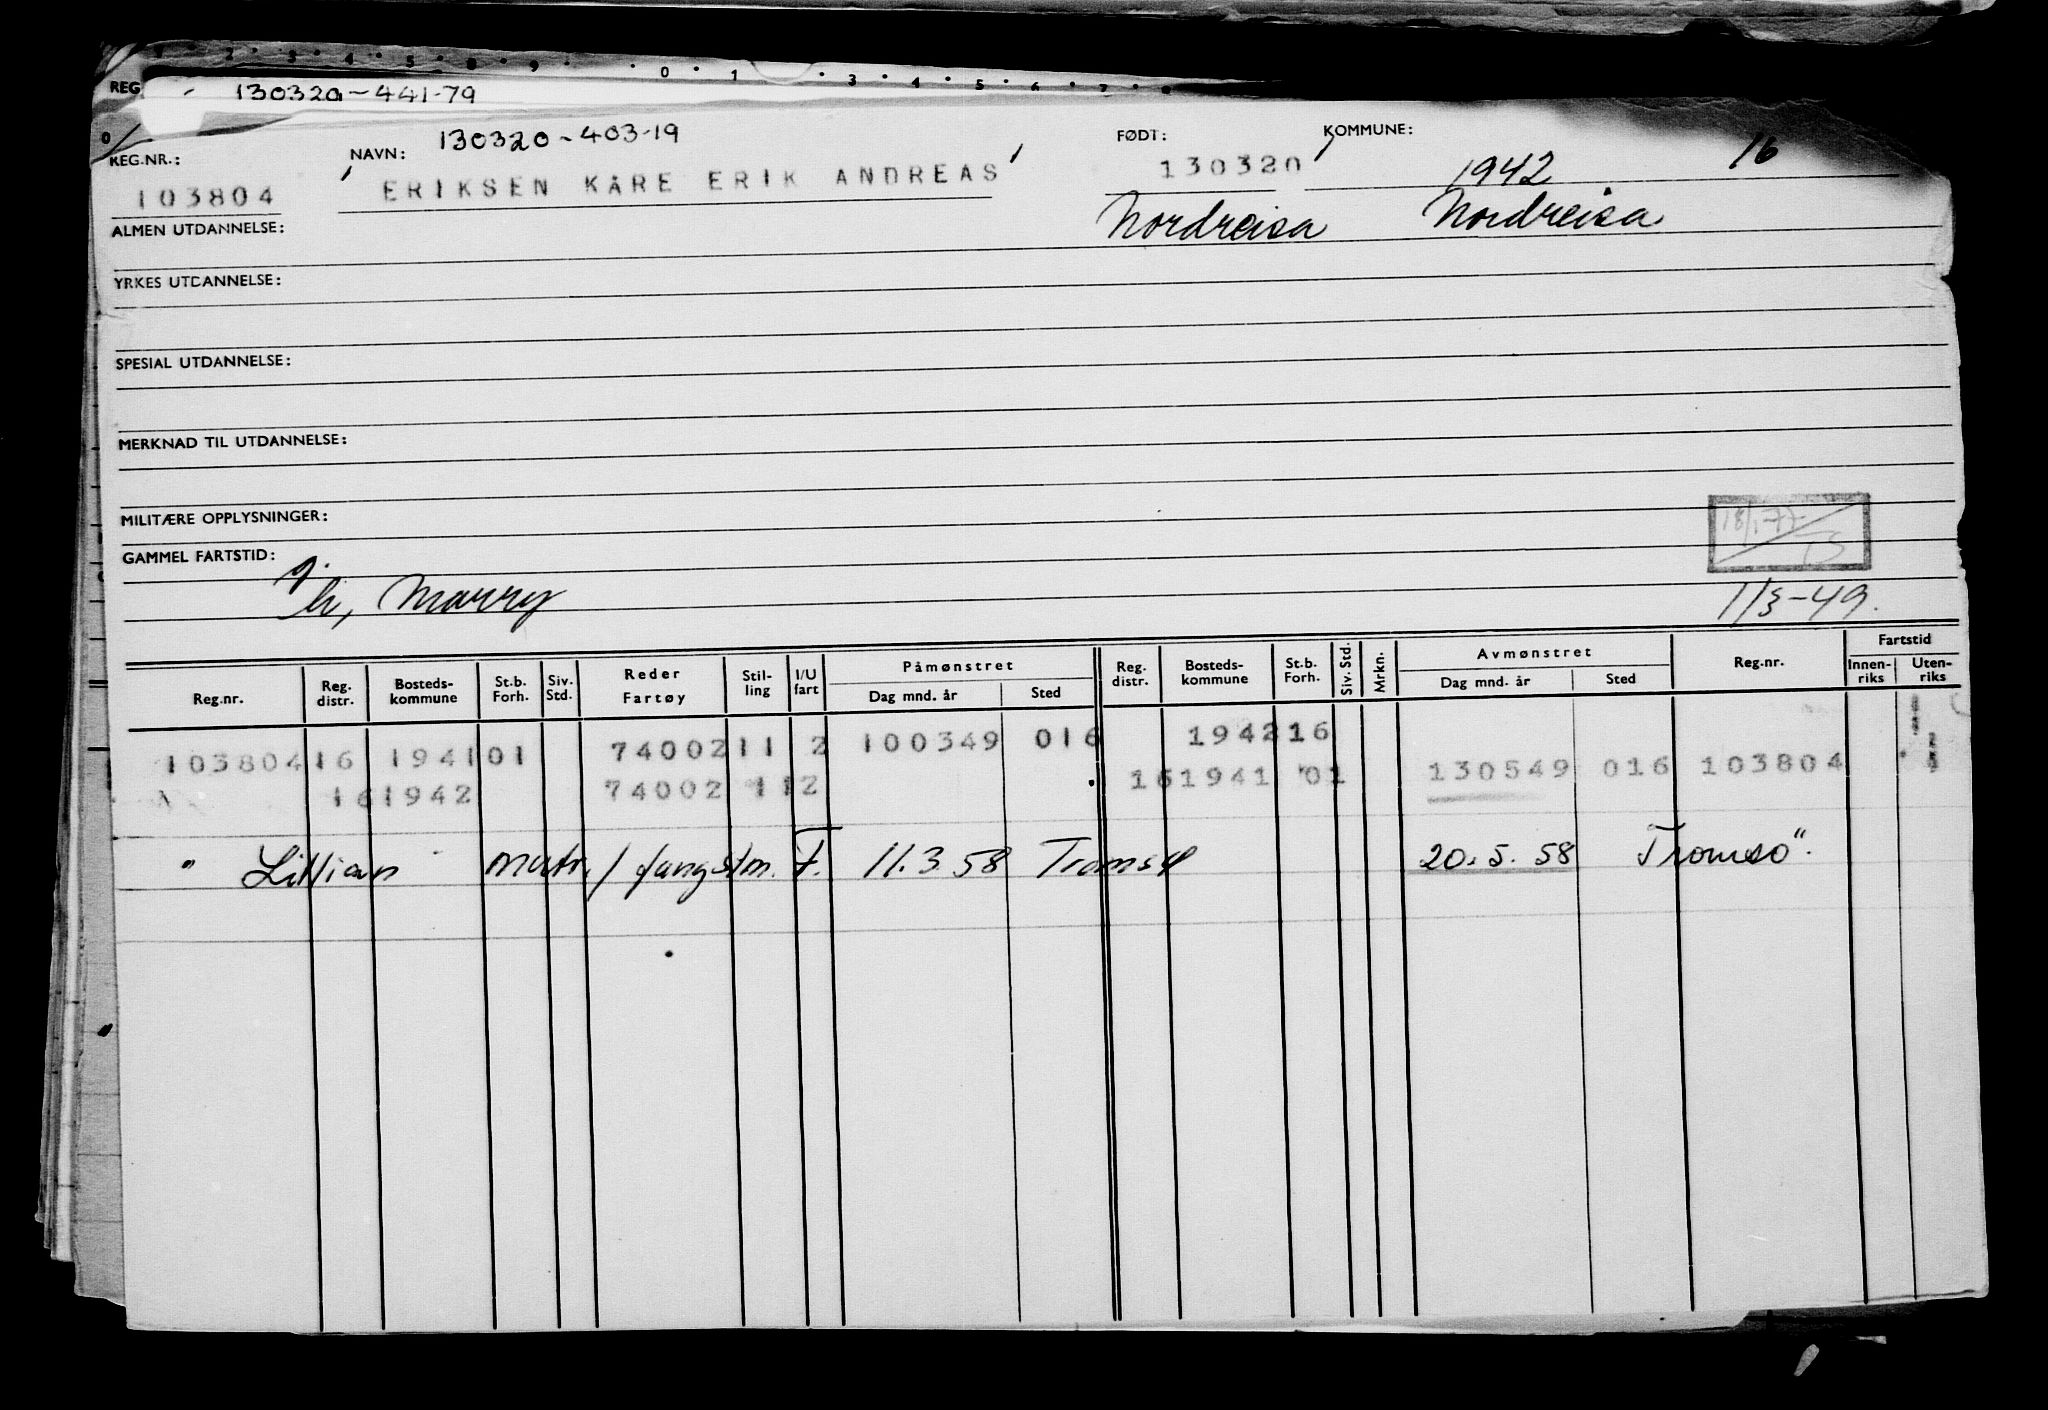 REG
130320-441-79
REG.NR.: NAVN: 130320-403-19 FØDT: KOMMUNE:
103804 ERIKSEN KÅRE ERIK ANDREAS 130320 1942 16
Nordreisa Nordreisa
ALMEN UTDANNELSE:
YRKES UTDANNELSE:
SPESIAL UTDANNELSE:
MERKNAD TIL UTDANNELSE:
MILITÆRE OPPLYSNINGER:
GAMMEL FARTSTID:
1/3-49.
Reg.nr. Reg. distr. Bosteds- kommune St.b. Forh. Siv. Std. Reder Fartøy Stil- ling I/U fart Påmønstret Dag mnd. år Sted Reg. distr. Bosteds- kommune St.b. Forh. Siv. Std. Mrkn. Avmønstret Dag mnd. år Sted Reg.nr. Fartstid Innen- riks Uten- riks
103804 16 1941 01 74002 11 2 100349 016 1942 16
16 1942 74002 11 2 16 1941 01 130549 016 103804
" Lillian matr./fangstm. F. 11.3.58 Tromsø 20.5.58 Tromsö".